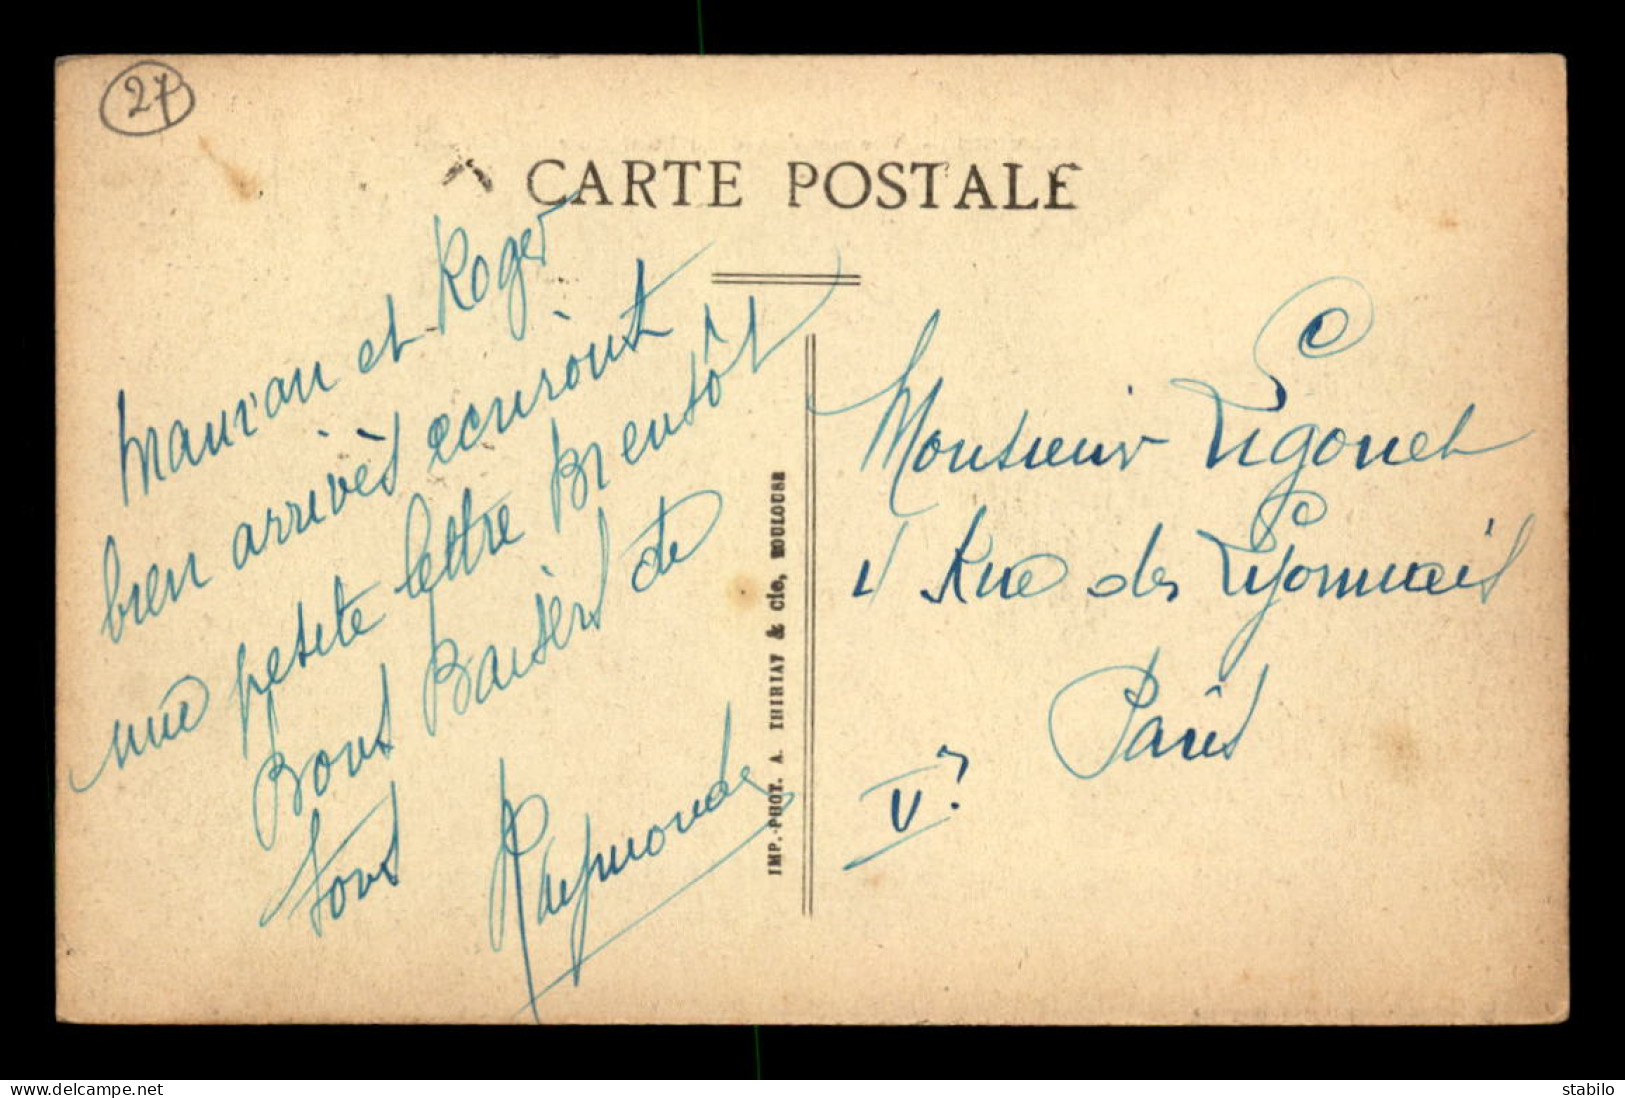 27
CARTE POSTALE
Maman et Roger
bien arrivés ecuriront
une petite lettre Bientôt
Bons Baisers de
tous
Raymonde
IMP.-PHOT. A. THIRIAT & Cie, TOULOUSE
Monsieur Ligonet
4 Rue des Lyonnais
Paris
V?
delcampe.net
stabilo